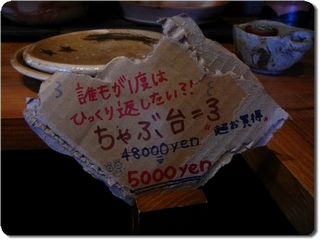 誰もが1度は
ひっくり返したい?!
ちゃぶ台=3
48000yen
超お買得。
5000yen